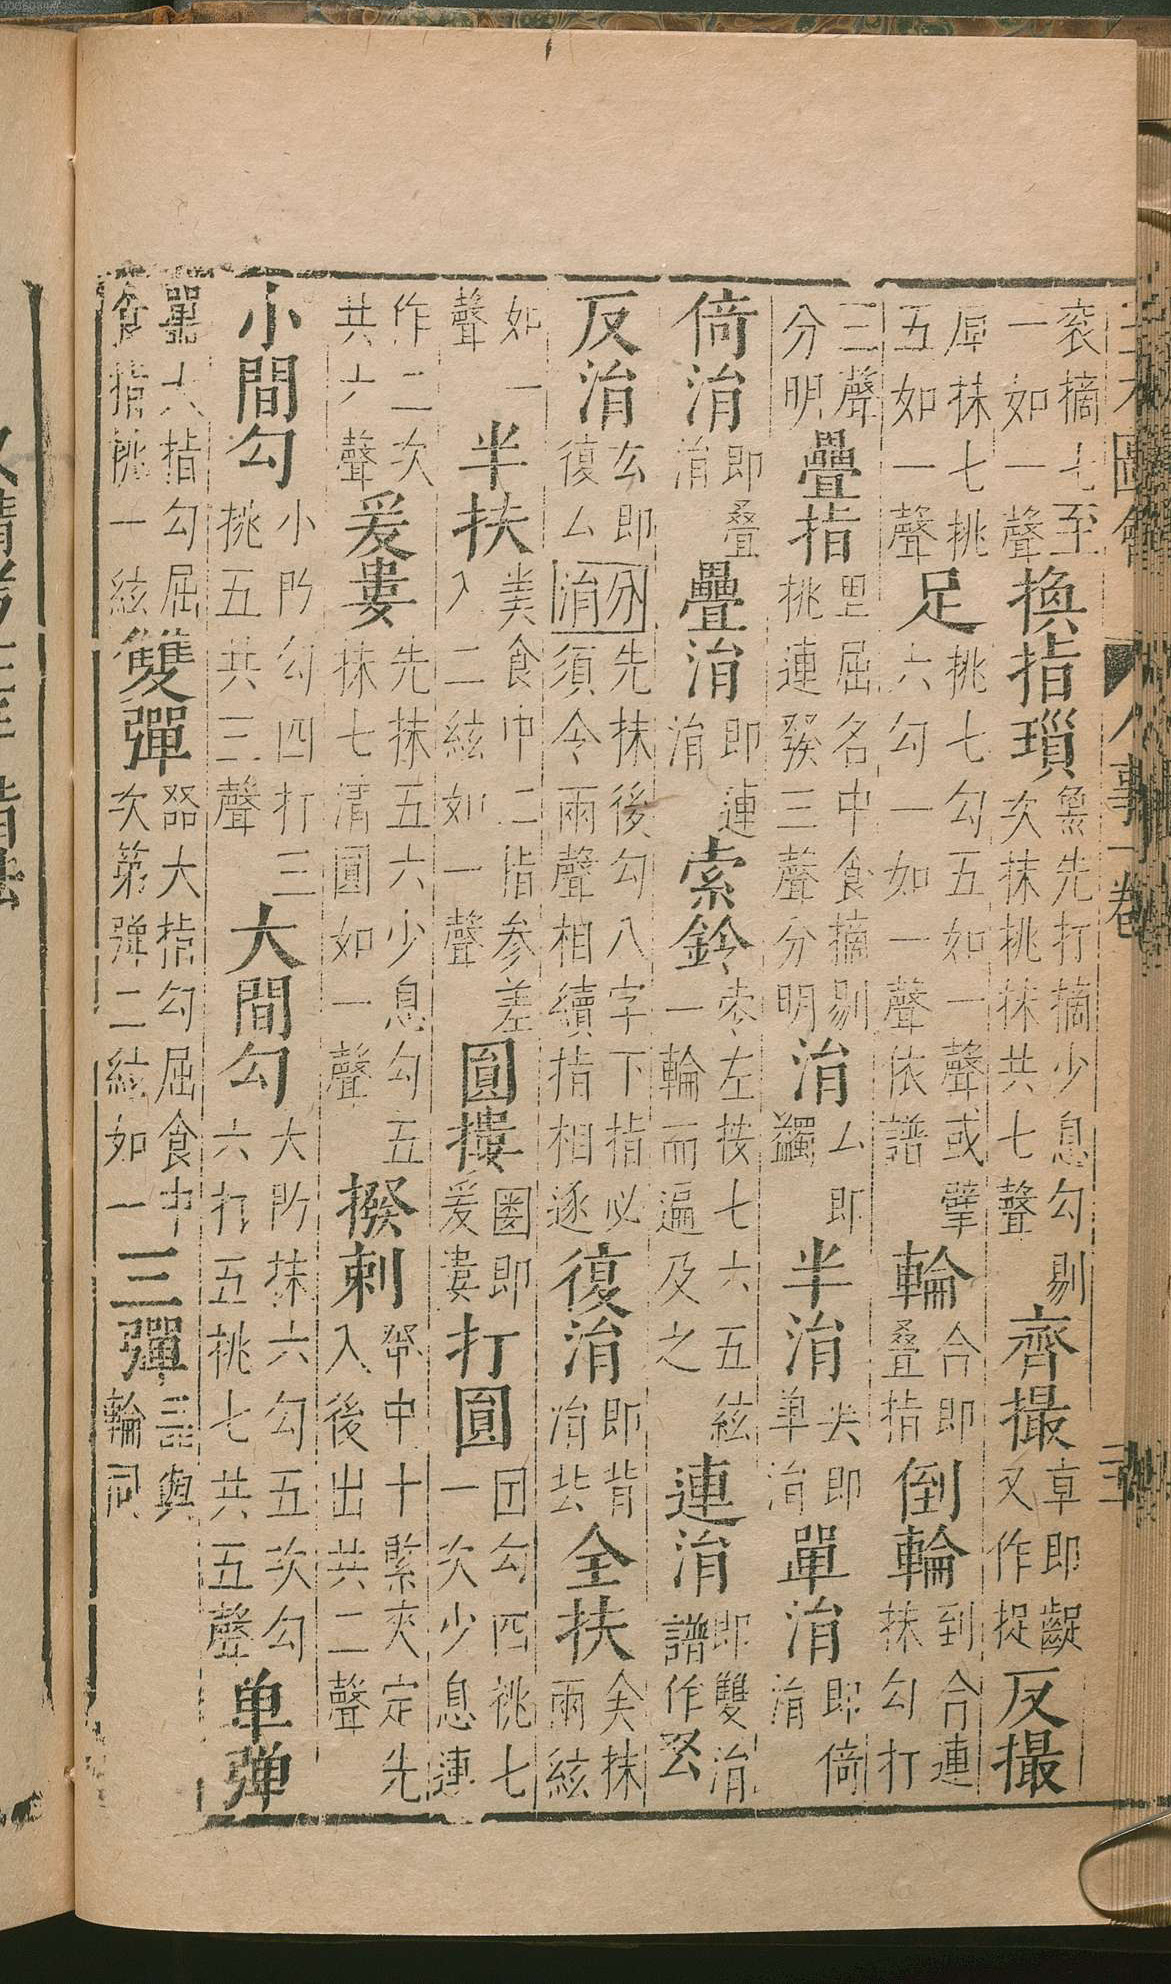 衮摘七至一如一聲換指瑣先打摘少息勾剔次抹挑抹共七聲齊撮卓即齪又作捉反撮
抹七挑五如一聲足挑七勾五如一聲或擘六勾一如一聲依譜輪合即叠指倒輪到合連抹勾打
三聲分明疊指里屈名中食摘剔挑連發三聲分明涓厶即蠲半涓尖即單涓單涓即倚涓
倚涓即叠涓疊涓即連涓索鈴左按七六五絃一輪而遍及之連涓即雙涓譜作
反涓玄即復厶先抹後勾八字下指必須令兩聲相續指相逐復涓即背涓全扶抹兩絃
如一聲半扶食中二指參差入二絃如一聲圓摟圏即爰婁打圓囙勾四挑七一次少息連
作二次共六聲爰婁先抹五六少息勾五抹七清圓如一聲撥刺中十緊夾定先入後出共二聲
小間勾小勾四打三挑五共三聲大間勾大抹六勾五次勾六打五挑七共五聲单弹
大指勾屈食指挑一絃雙彈大指勾屈食中次第彈二絃如一三彈與輪同
人事一卷